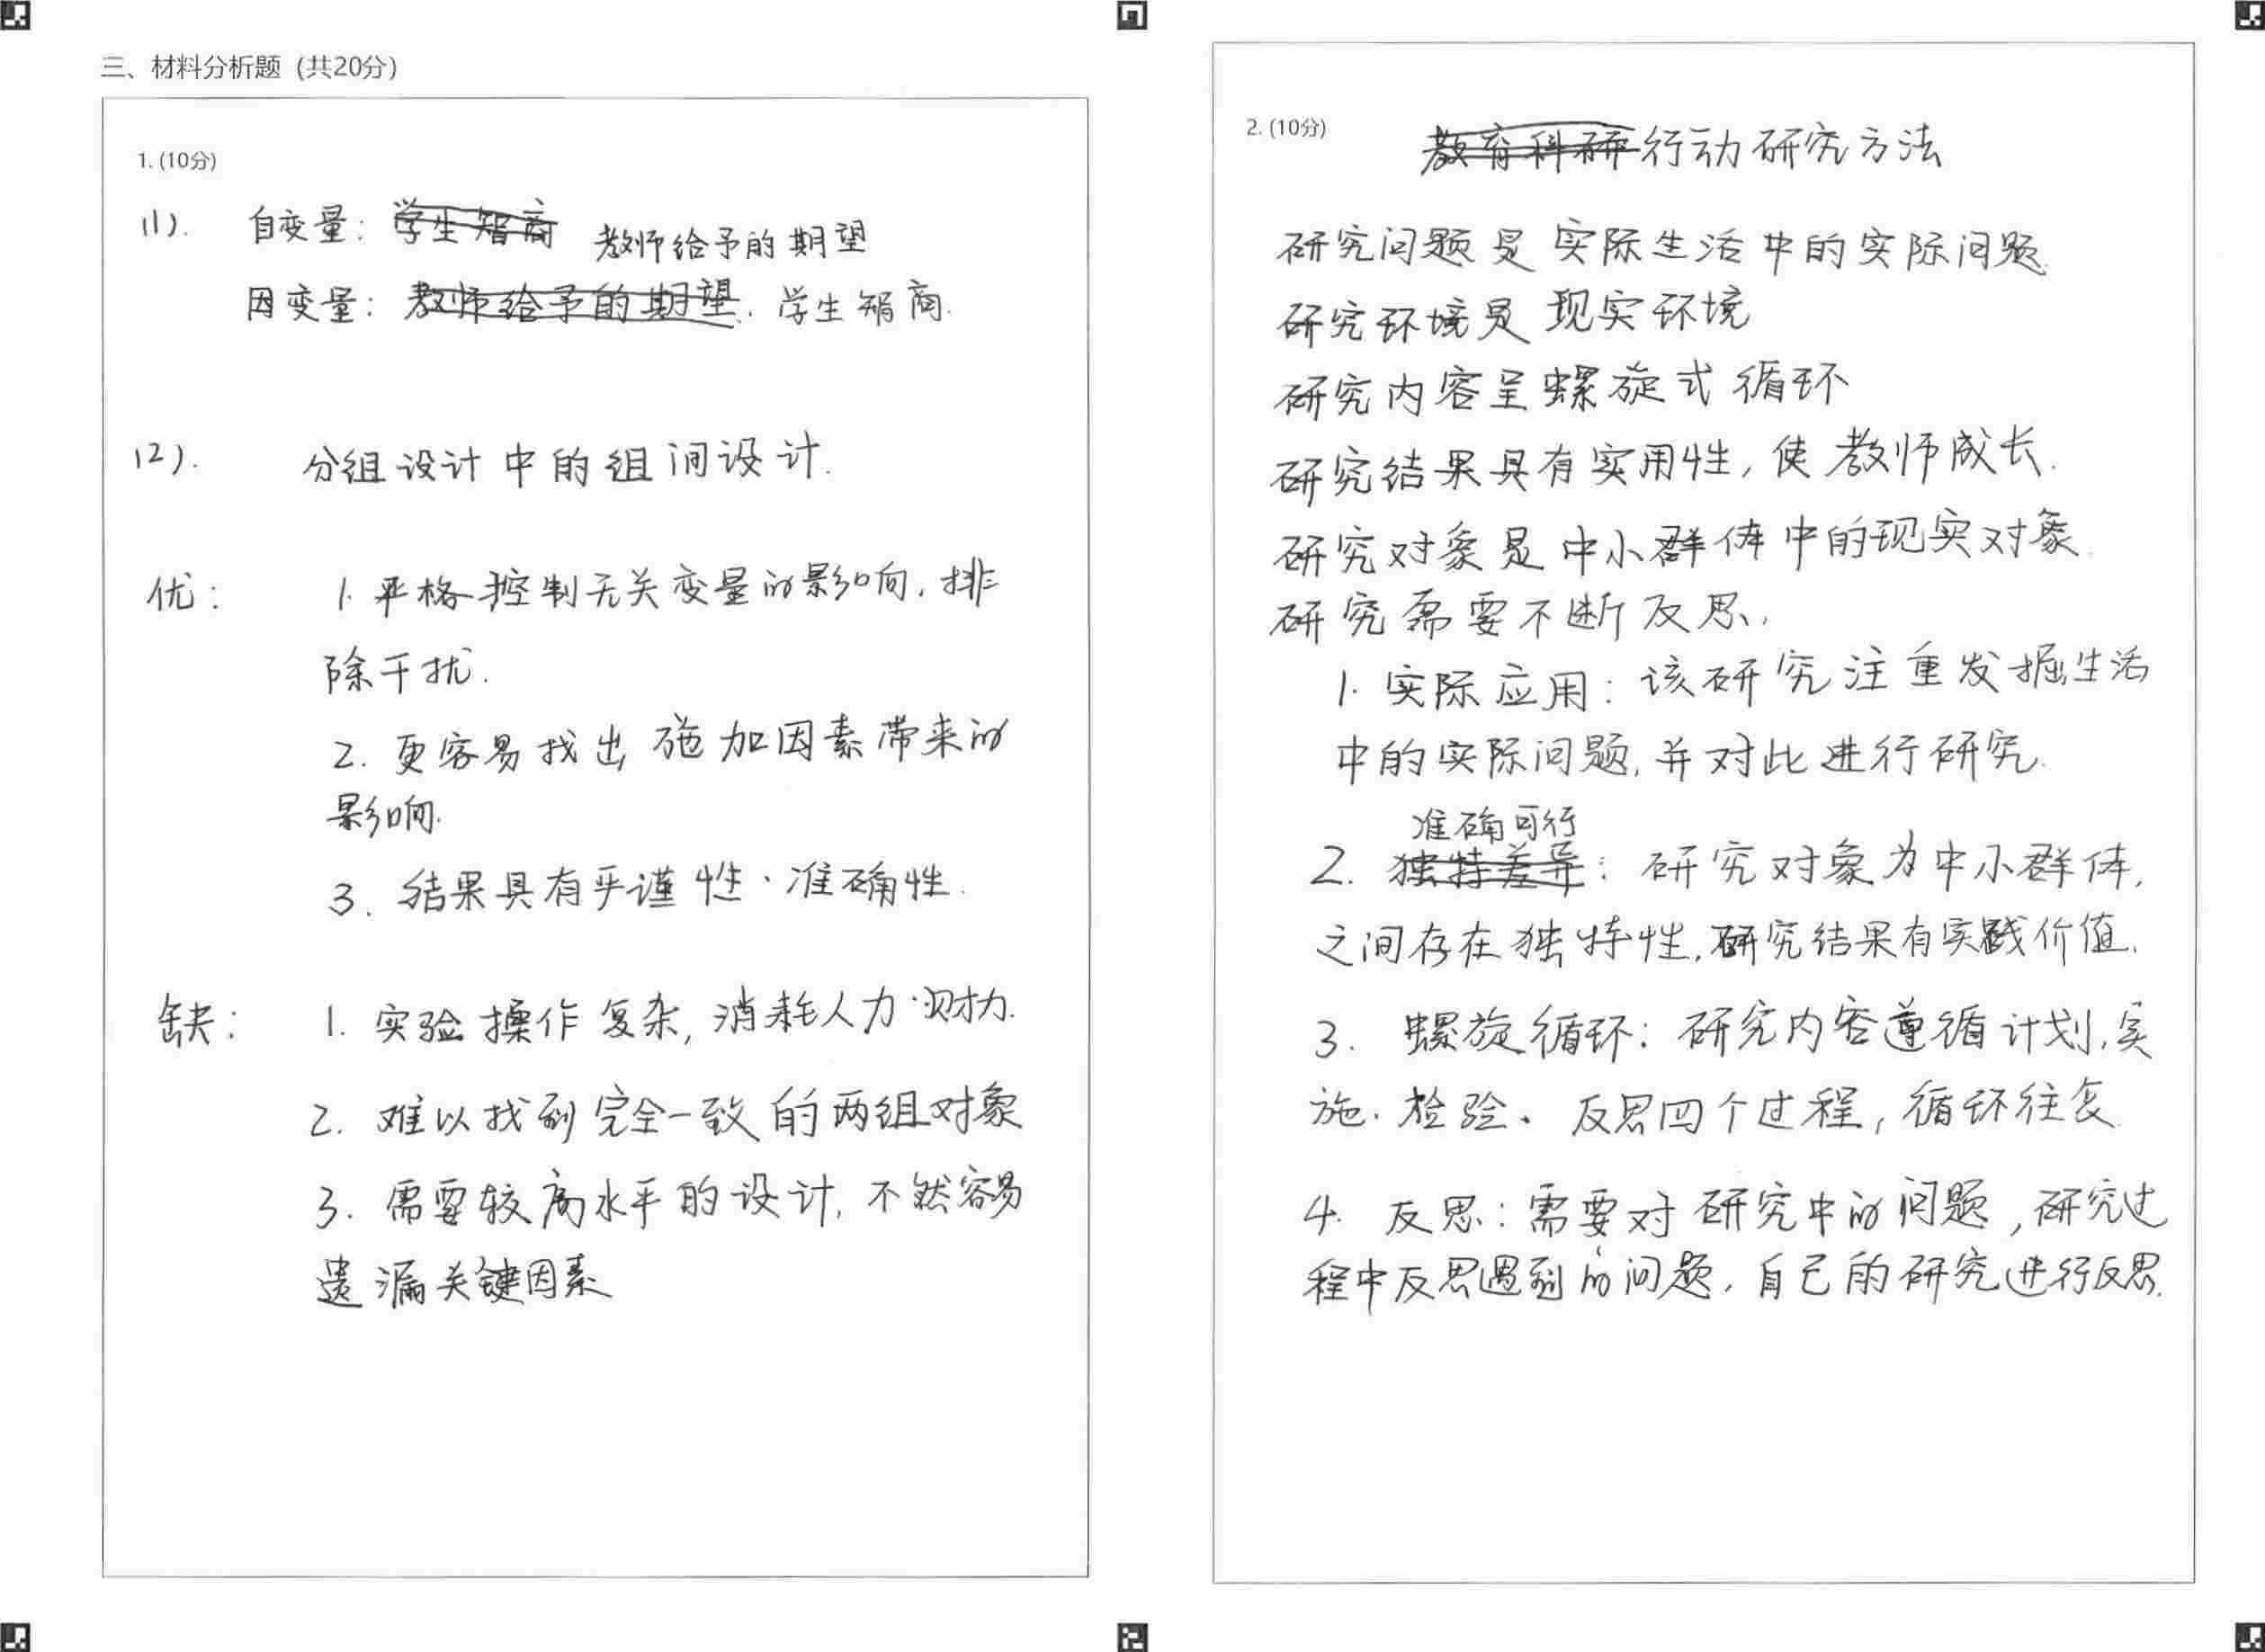 三、材料分析题 (共20分)
1. (10分)
(1). 自变量: 学生智商 教师给予的期望
因变量: 教师给予的期望. 学生智商.
(2). 分组设计中的组间设计.
优: 1. 严格控制无关变量的影响, 排
除干扰.
2. 更容易找出施加因素带来的
影响.
3. 结果具有严谨性、准确性.
缺: 1. 实验操作复杂, 消耗人力、财力.
2. 难以找到完全一致的两组对象
3. 需要较高水平的设计, 不然容易
遗漏关键因素
2. (10分)
教育科研行动研究方法
研究问题是实际生活中的实际问题.
研究环境是现实环境
研究内容呈螺旋式循环
研究结果具有实用性, 使教师成长.
研究对象是中小群体中的现实对象.
研究需要不断反思,
1. 实际应用: 该研究注重发掘生活
中的实际问题, 并对此进行研究.
准确可行
2. 独特差异: 研究对象为中小群体,
之间存在独特性, 研究结果有实践价值.
3. 螺旋循环: 研究内容遵循计划, 实
施、检验、反思四个过程, 循环往复
4. 反思: 需要对研究中的问题, 研究过
程中反思遇到的问题, 自己的研究进行反思.